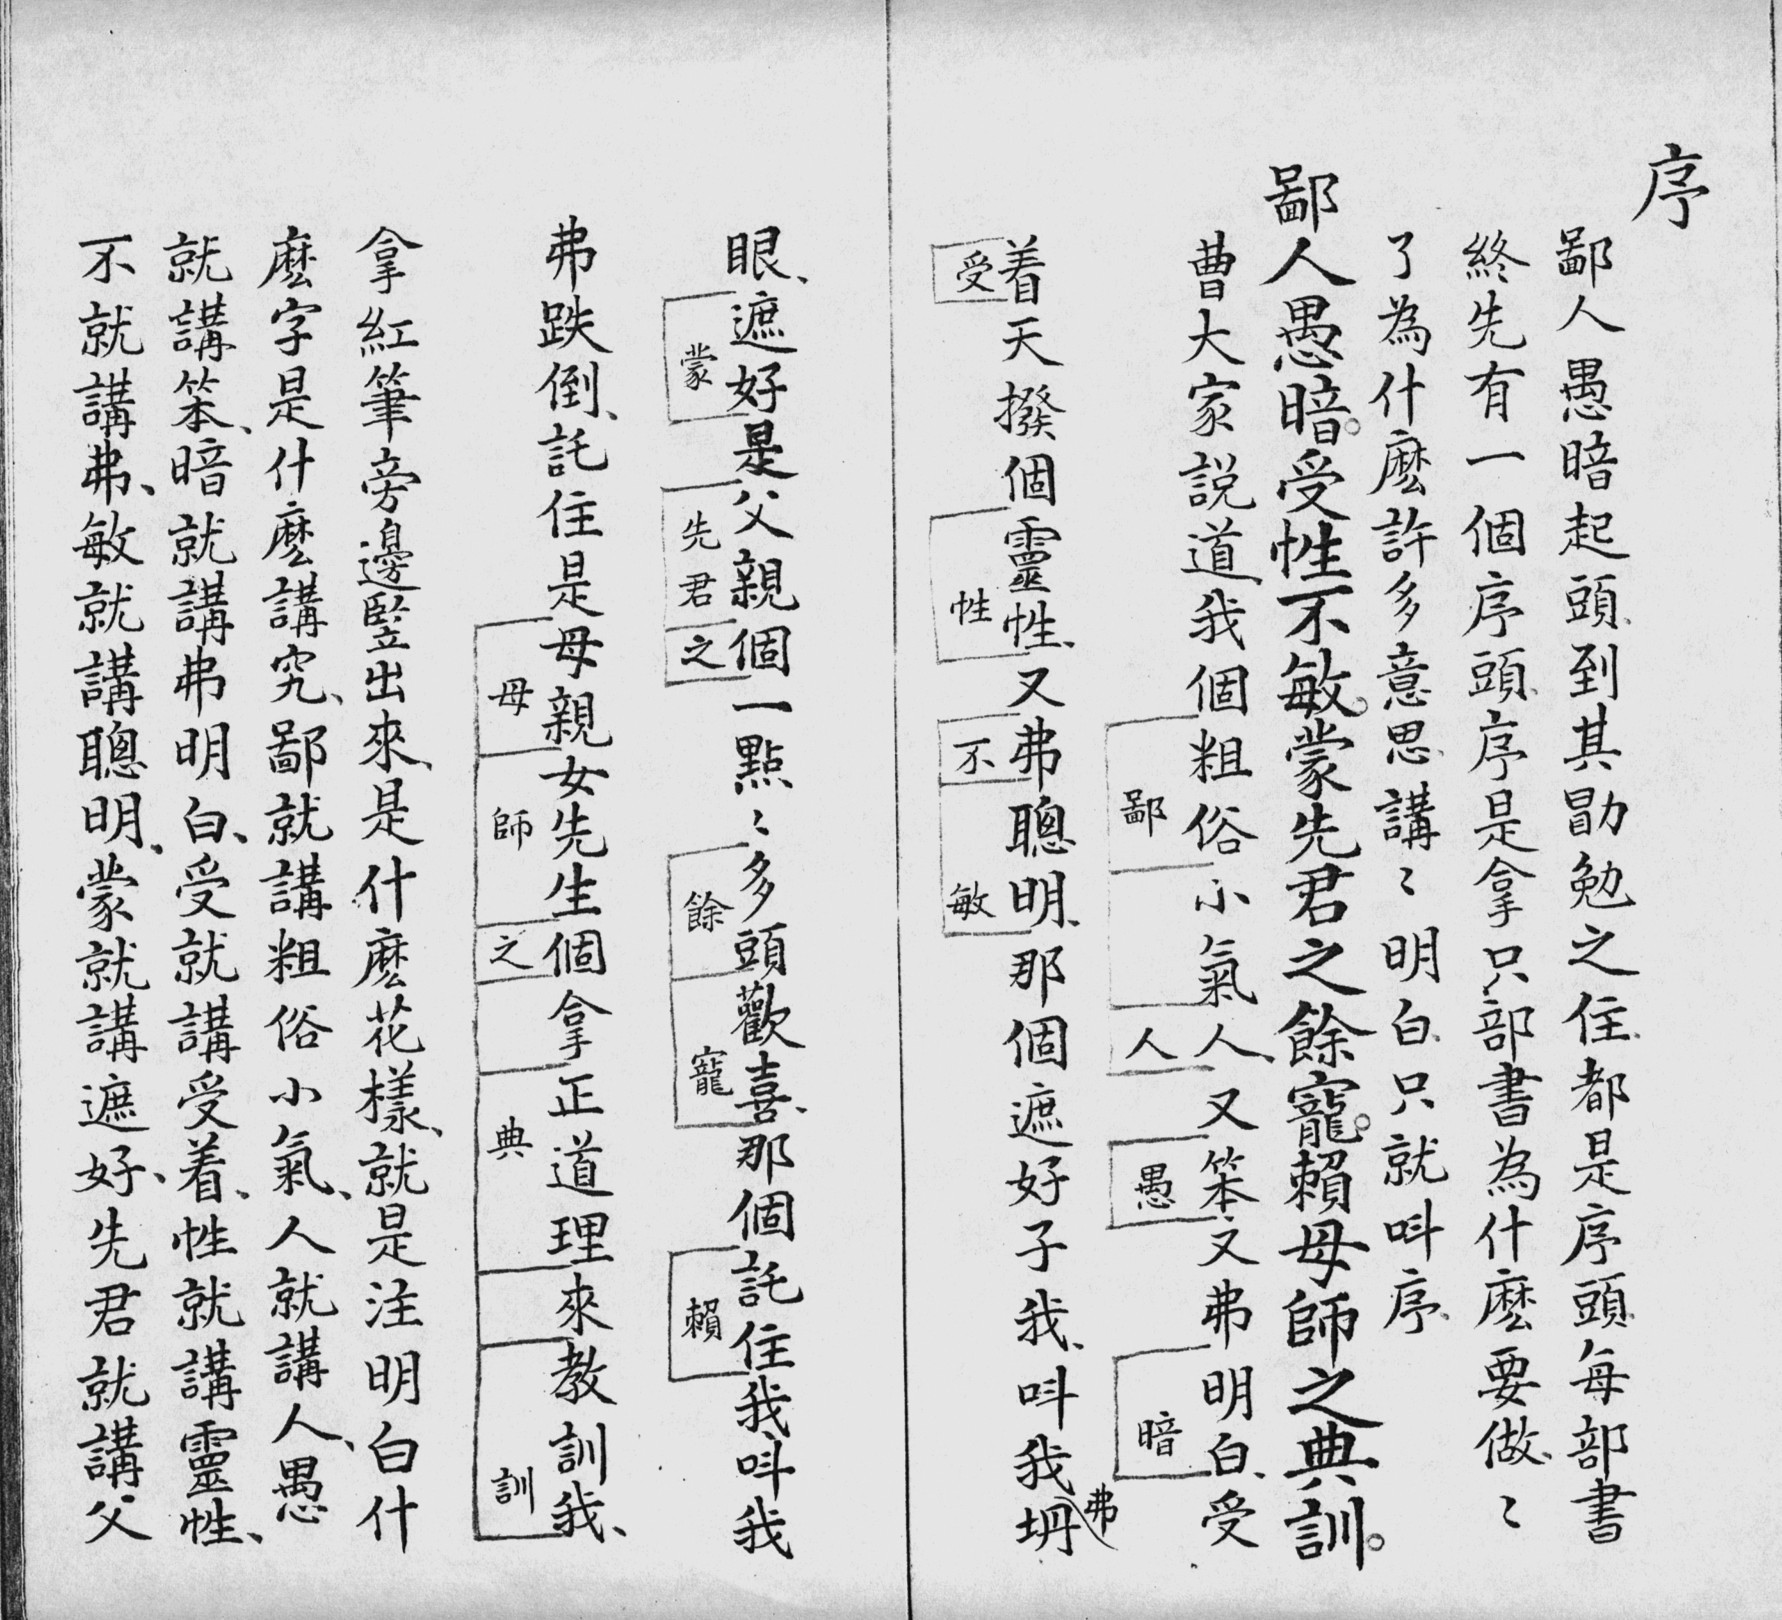 序
鄙人愚暗起頭、到其勖勉之住、都是序頭、每部書
終先有一個序頭、序是拿只部書為什麽要做、〻
了為什麽許多意思、講〻明白、只就呌序、
鄙人愚暗。受性不敏。蒙先君之餘寵。賴母師之典訓。
曹大家説道、我個粗俗小氣人、又笨又弗明白、受
鄙 人 愚 暗
着天撥個靈性、又弗聰明、那個遮好子我、呌我弗坍
受 性 不 敏
眼、遮好是父親個一點〻多頭歡喜、那個託住我、呌我
蒙 先君 之 餘 寵 賴
弗跌倒、託住是母親女先生個拿正道理來教訓我、
母 師 之 典 訓
拿紅筆旁邊竪出來、是什麽花樣、就是注明白什
麽字是什麽講究、鄙就講粗俗小氣、人就講人、愚
就講笨、暗就講弗明白、受就講受着、性就講靈性、
不就講弗、敏就講聰明、蒙就講遮好、先君就講父